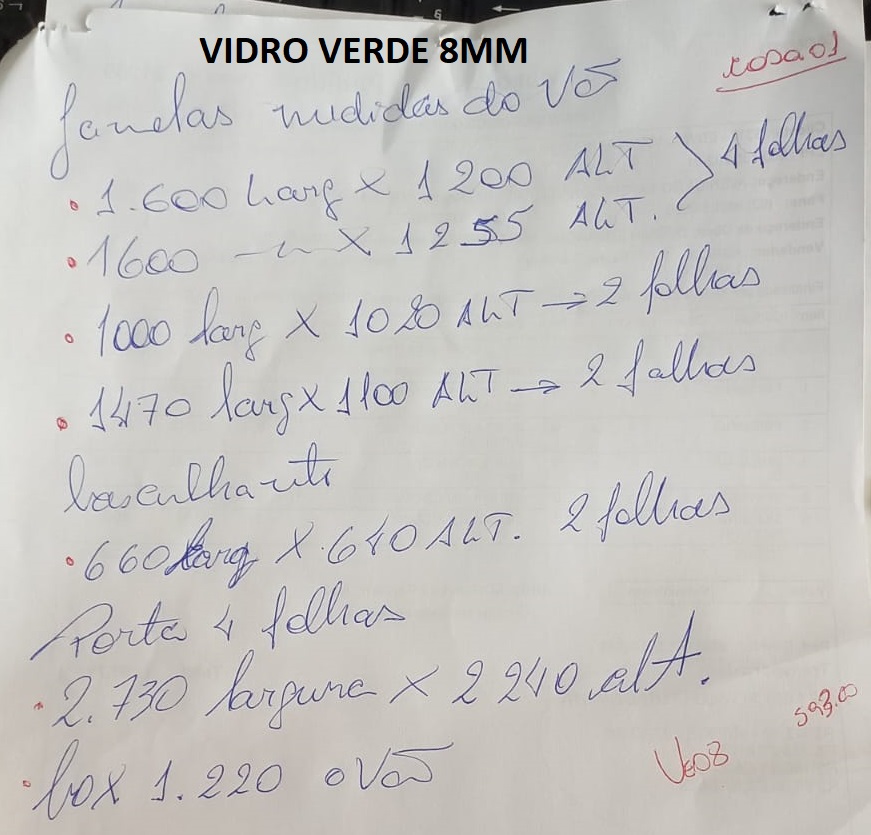 VIDRO VERDE 8MM
rosa 01
Janelas medidas do Vão
1.600 Larg X 1 200 ALT > 4 folhas
1600 -~- X 1255 ALT.
1000 larg X 1020 ALT → 2 folhas
1470 larg X 1100 ALT → 2 folhas
basculhante
660 larg X 610 ALT. 2 folhas
Porta 4 folhas
2.730 largura X 2 240 alt.
593.00
box 1.220 o Vão
VE08